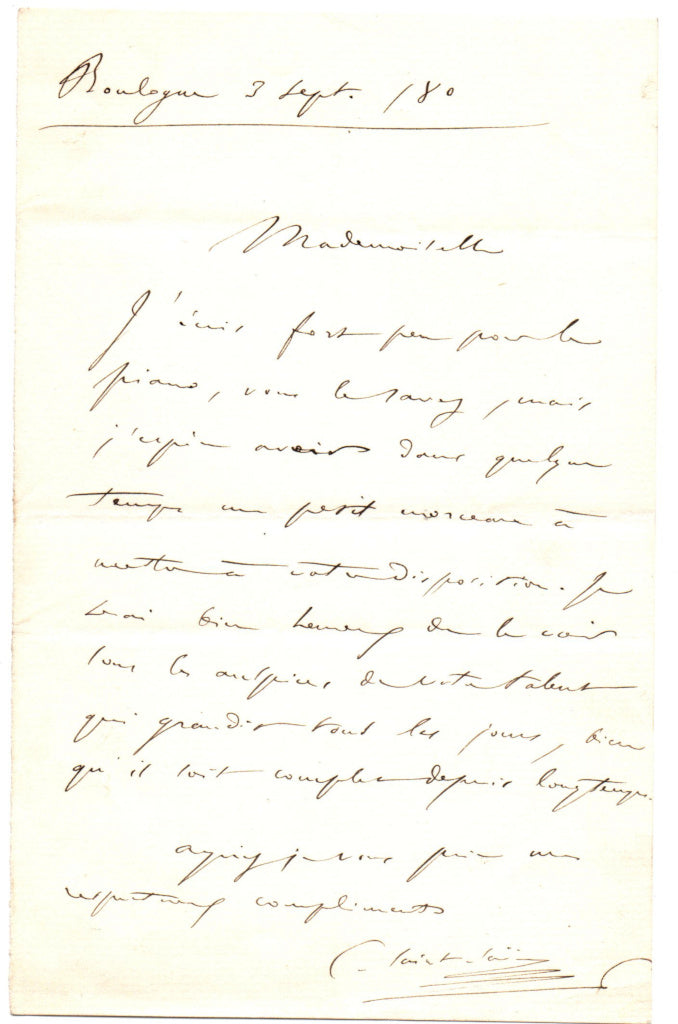 Boulogne 3 Sept. 180
Mademoiselle
J'écris fort peu pour le
piano, vous le savez, mais
j'espère avoir dans quelque
temps un petit morceau à
mettre à votre disposition. Je
serai bien heureux de le voir
sous les auspices de votre talent
qui grandit tous les jours, bien
qu'il soit complet depuis longtemps.
agréez je vous prie mes
respectueux compliments
C. Saint-Saëns